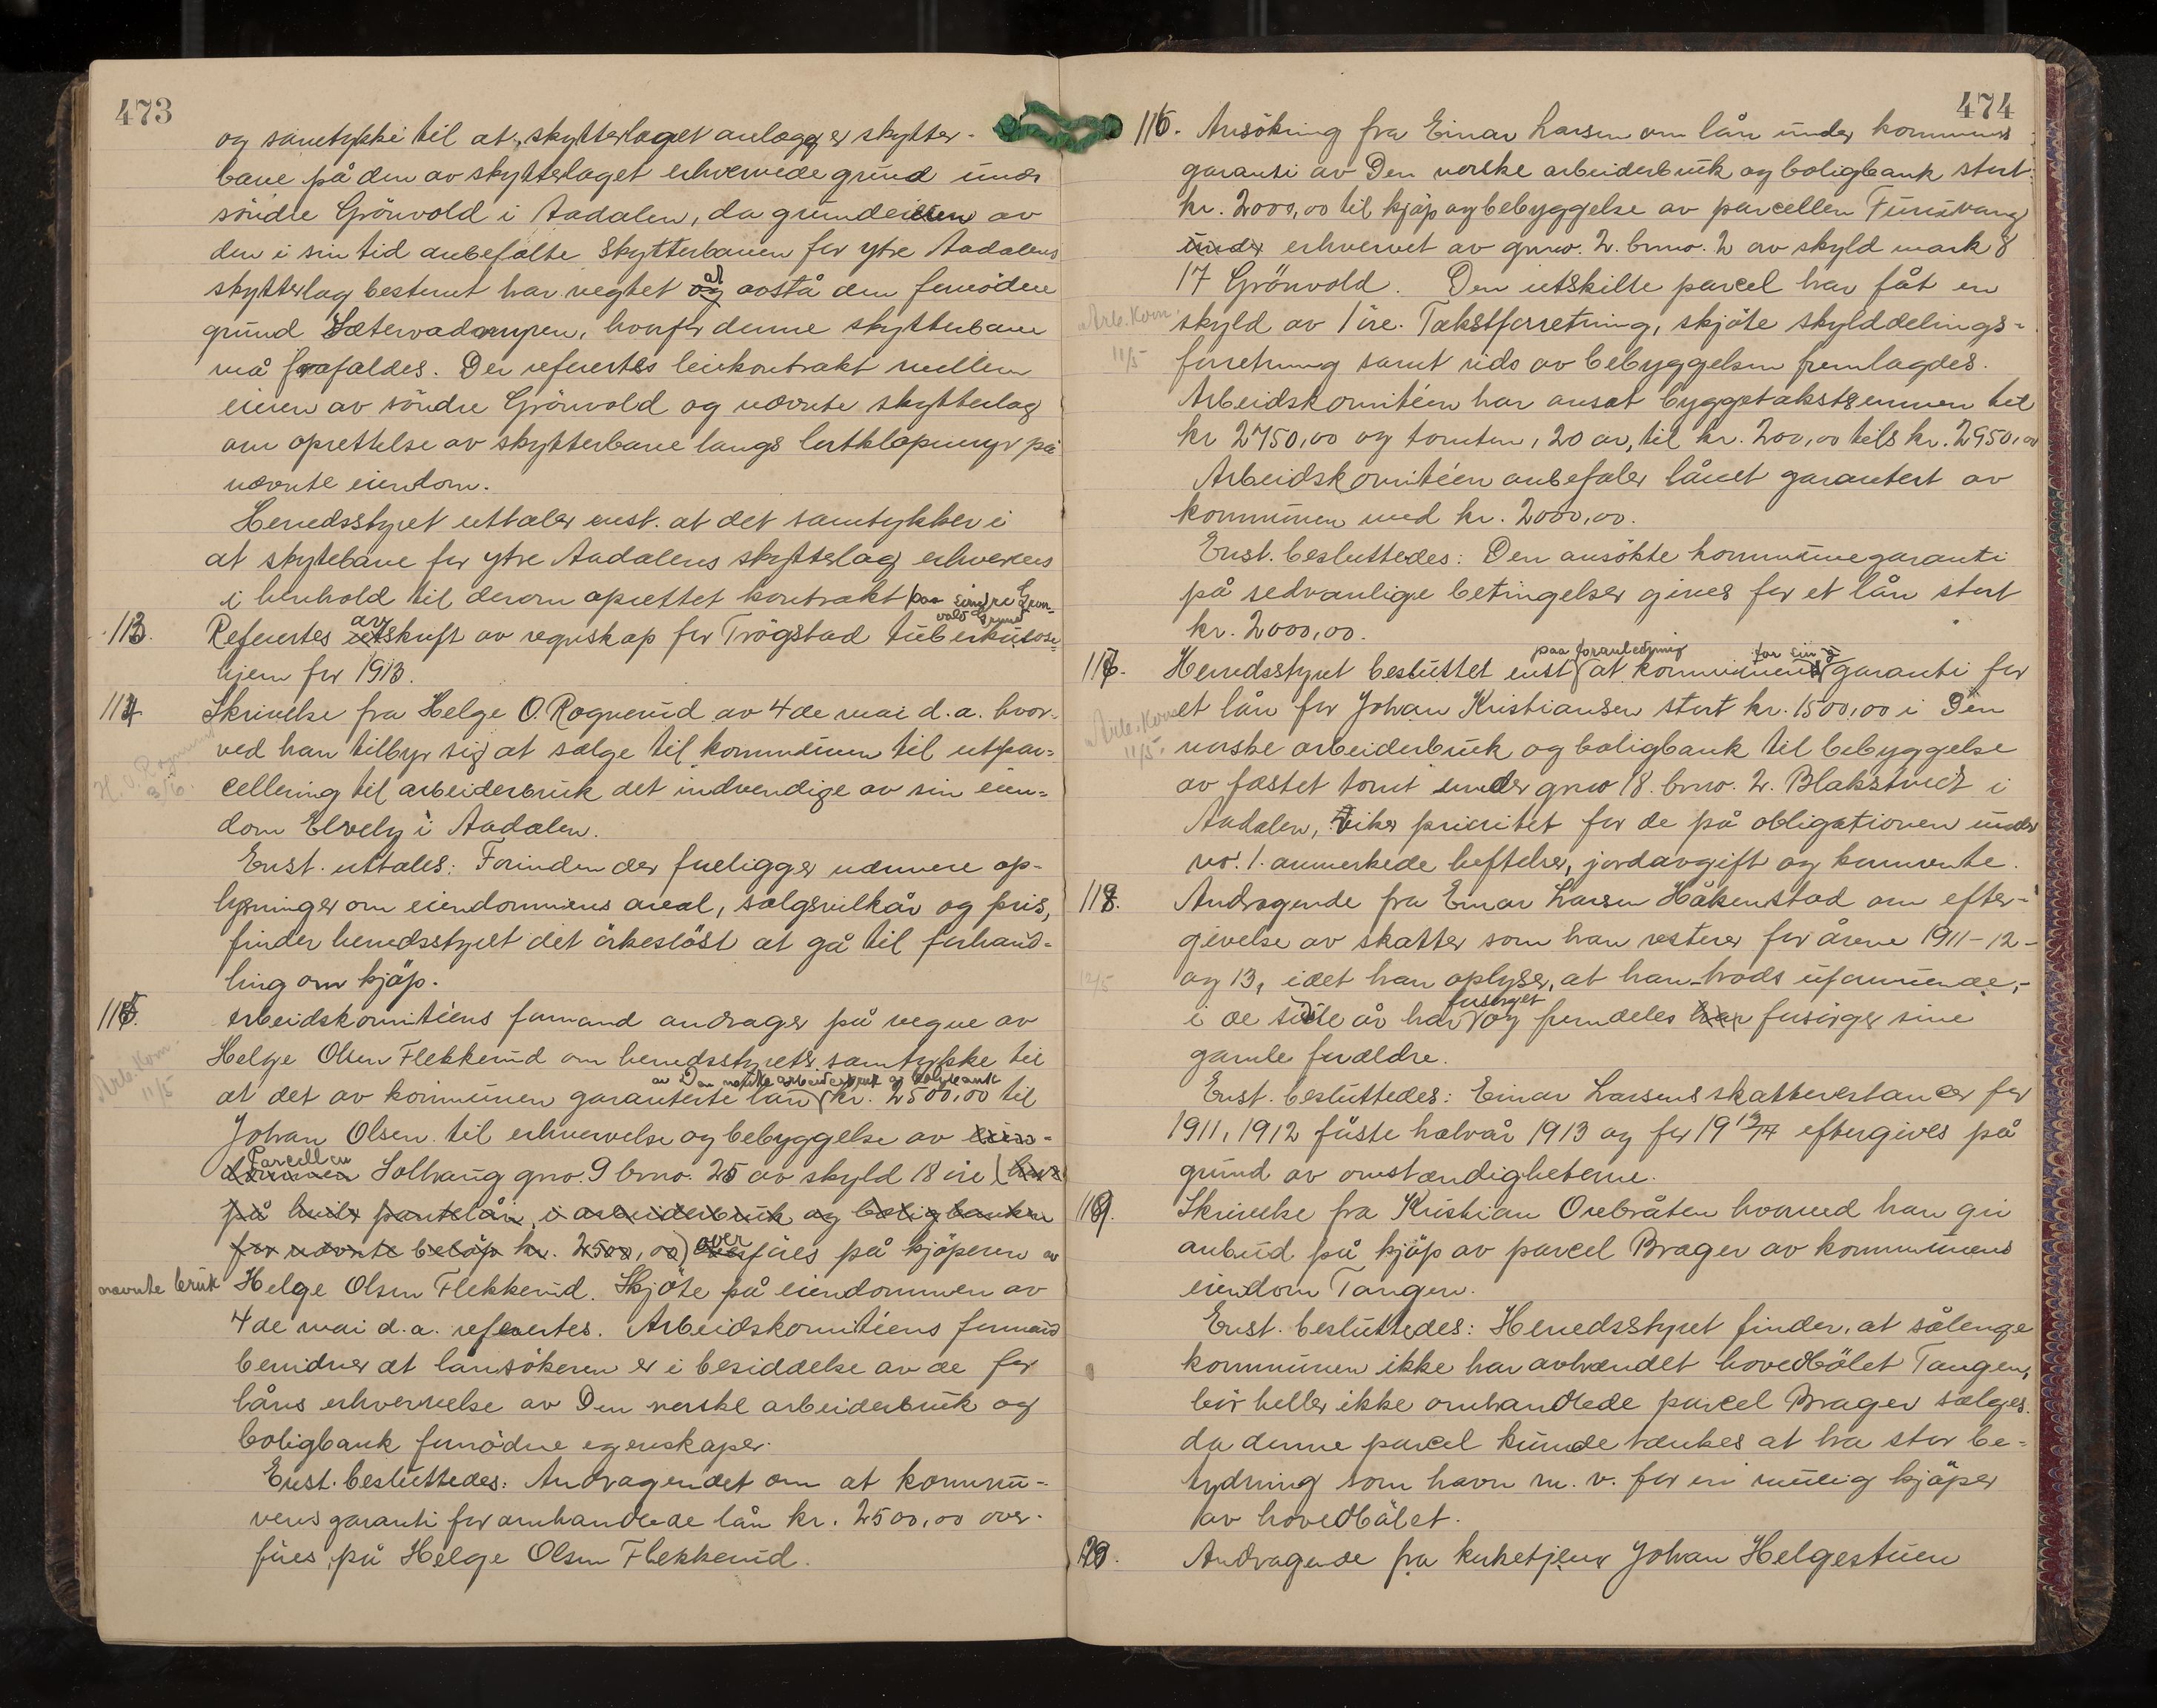 473
og samtykke til at skytterlaget anlægger skytter-
bane på den av skytterlaget erhvervede grund under
söndre Grönvold i Aadalen, da grundeieren av
den i sin tid anbefalte skytterbanen for ytre Aadalens
skytterlag bestemt har negtet at avstå den fornödne
grund Sætervadmyren, hvorfor denne skytterbane
må forafaldes. Der refertes leiekontrakt mellem
eieren av söndre Grönvold og nævnte skytterlag
om oprettelse av skytterbane langs lertklopmyr på
nævnte eiendom.
Herredsstyret uttaler enst. at det samtykker i
at skytebane for ytre Aadalens skytterlag erhverves
i henhold til derom oprettet kontrakt paa søndre Grøn-
vold grund
113. Refertes avskrift av regnskap for Trögstad tuberkulose-
hjem for 1913.
114 Skrivelse fra Helge O. Rognerud av 4de mai d.a. hvor-
ved han tilbyr sig at sælge til kommunen til utpar-
H. O. Rognerud 3/6.
cellering til arbeiderbruk det indvendige av sin eien-
dom Elvely i Aadalen.
Enst. uttales: Forinden der foreligger nærmere op-
lysninger om eiendommens areal, salgsvilkår og pris,
finder herredsstyret det örkeslöst at gå til forhand-
ling om kjöp.
115. Arbeidskomitéens formand andrager på vegne av
Arb. Kom. 11/5
Helge Olsen Flekkerud om herredsstyrets samtykke til
av Den norske arbeiderbruk og boligbank
at det av kommunen garanterte lån kr. 2500,00 til
Johan Olsen til erhvervelse og bebyggelse av eien-
Parcellen
dommen Solhaug gno. 9 brno. 25 av skyld 18 öre (
på huilr pantelån i arbeiderbruk og boligbanken
for nævnte belöp kr. 2500,00) overföres på kjöperen av
nævnte bruk Helge Olsen Flekkerud. Skjöte på eiendommen av
4de mai d.a. refertes. Arbeidskomitéens formand
bevidner at lånsökeren er i besiddelse av de for
låns erhvervelse av Den norske arbeiderbruk og
boligbank fornödne egenskaper.
Enst. besluttedes: Andragendet om at kommu-
nens garanti for omhandlede lån kr. 2500,00 over-
föres på Helge Olsen Flekkerud.
474
116. Ansökning fra Einar Larsen om lån under kommunens
garanti av Den norske arbeiderbruk og boligbank stort
kr. 2000,00 til kjöp og bebyggelse av parcellen Furuvang
under erhvervet av gnno. 2. brno. 2 av skyld mark 8
17 Grönvold. Den utskilte parcel har fåt en
Arb. Kom 11/5
skyld av 1 öre. Takstforretning, skjöte skylddelings-
forretning samt rids av bebyggelsen fremlagdes.
Arbeidskomitéen har ansat byggetakstsummen til
kr 2750,00 og tomten, 20 ar, til kr. 200,00 tils kr. 2950,00
Arbeidskomitéen anbefaler lånet garantert av
kommunen med kr. 2000,00.
Enst. besluttedes: Den ansökte kommunegaranti
på sedvanlige betingelser gives for et lån stort
kr. 2000,00.
paa foranledning for sin
117. Herredsstyret besluttet enst at kommunens garanti for
Arb. Kom 11/5.
et lån for Johan Kristiansen stort kr. 1500,00 i Den
norske arbeiderbruk og boligbank til bebyggelse
av fæstet tomt under gnno 18. brno. 2. Blakstvedt i
Aadalen, viker prioritet for de på obligationen under
no. 1. anmerkede heftelser, jordavgift og kommente.
118. Andragende fra Einar Larsen Håkenstad om efter-
givelse av skatter som han resterer for årene 1911-12-
12/5
og 13, idet han oplyser, at han trods uformuende,-
i de siste år har forsörget og fremdeles har forsörger sine
gamle forældre.
Enst. besluttedes: Einar Larsens skatterestancer for
1911, 1912 förste halvår 1913 og for 1913/14 eftergives på
grund av omstændigheterne.
119. Skrivelse fra Kristian Orebråten hvorved han gir
anbud på kjöp av parcel Brager av kommunens
eiendom Tangen.
Enst. besluttedes: Herredsstyret finder, at sålenge
kommunen ikke har avhændet hovedbölet Tangen,
bör heller ikke omhandlede parcel Brager sælges.
da denne parcel kunde tænkes at ha stor be-
tydning som havn m. v. for en mulig kjöper
av hovedbölet.
120. Andragende fra kirketjener Johan Helgestuen